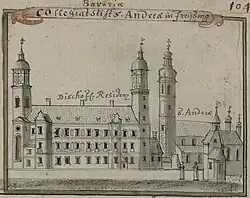 Bavaria
104
Collegiatstifft S. Andreæ in Freysing
Bischoffl. Residenz
S. Andreæ